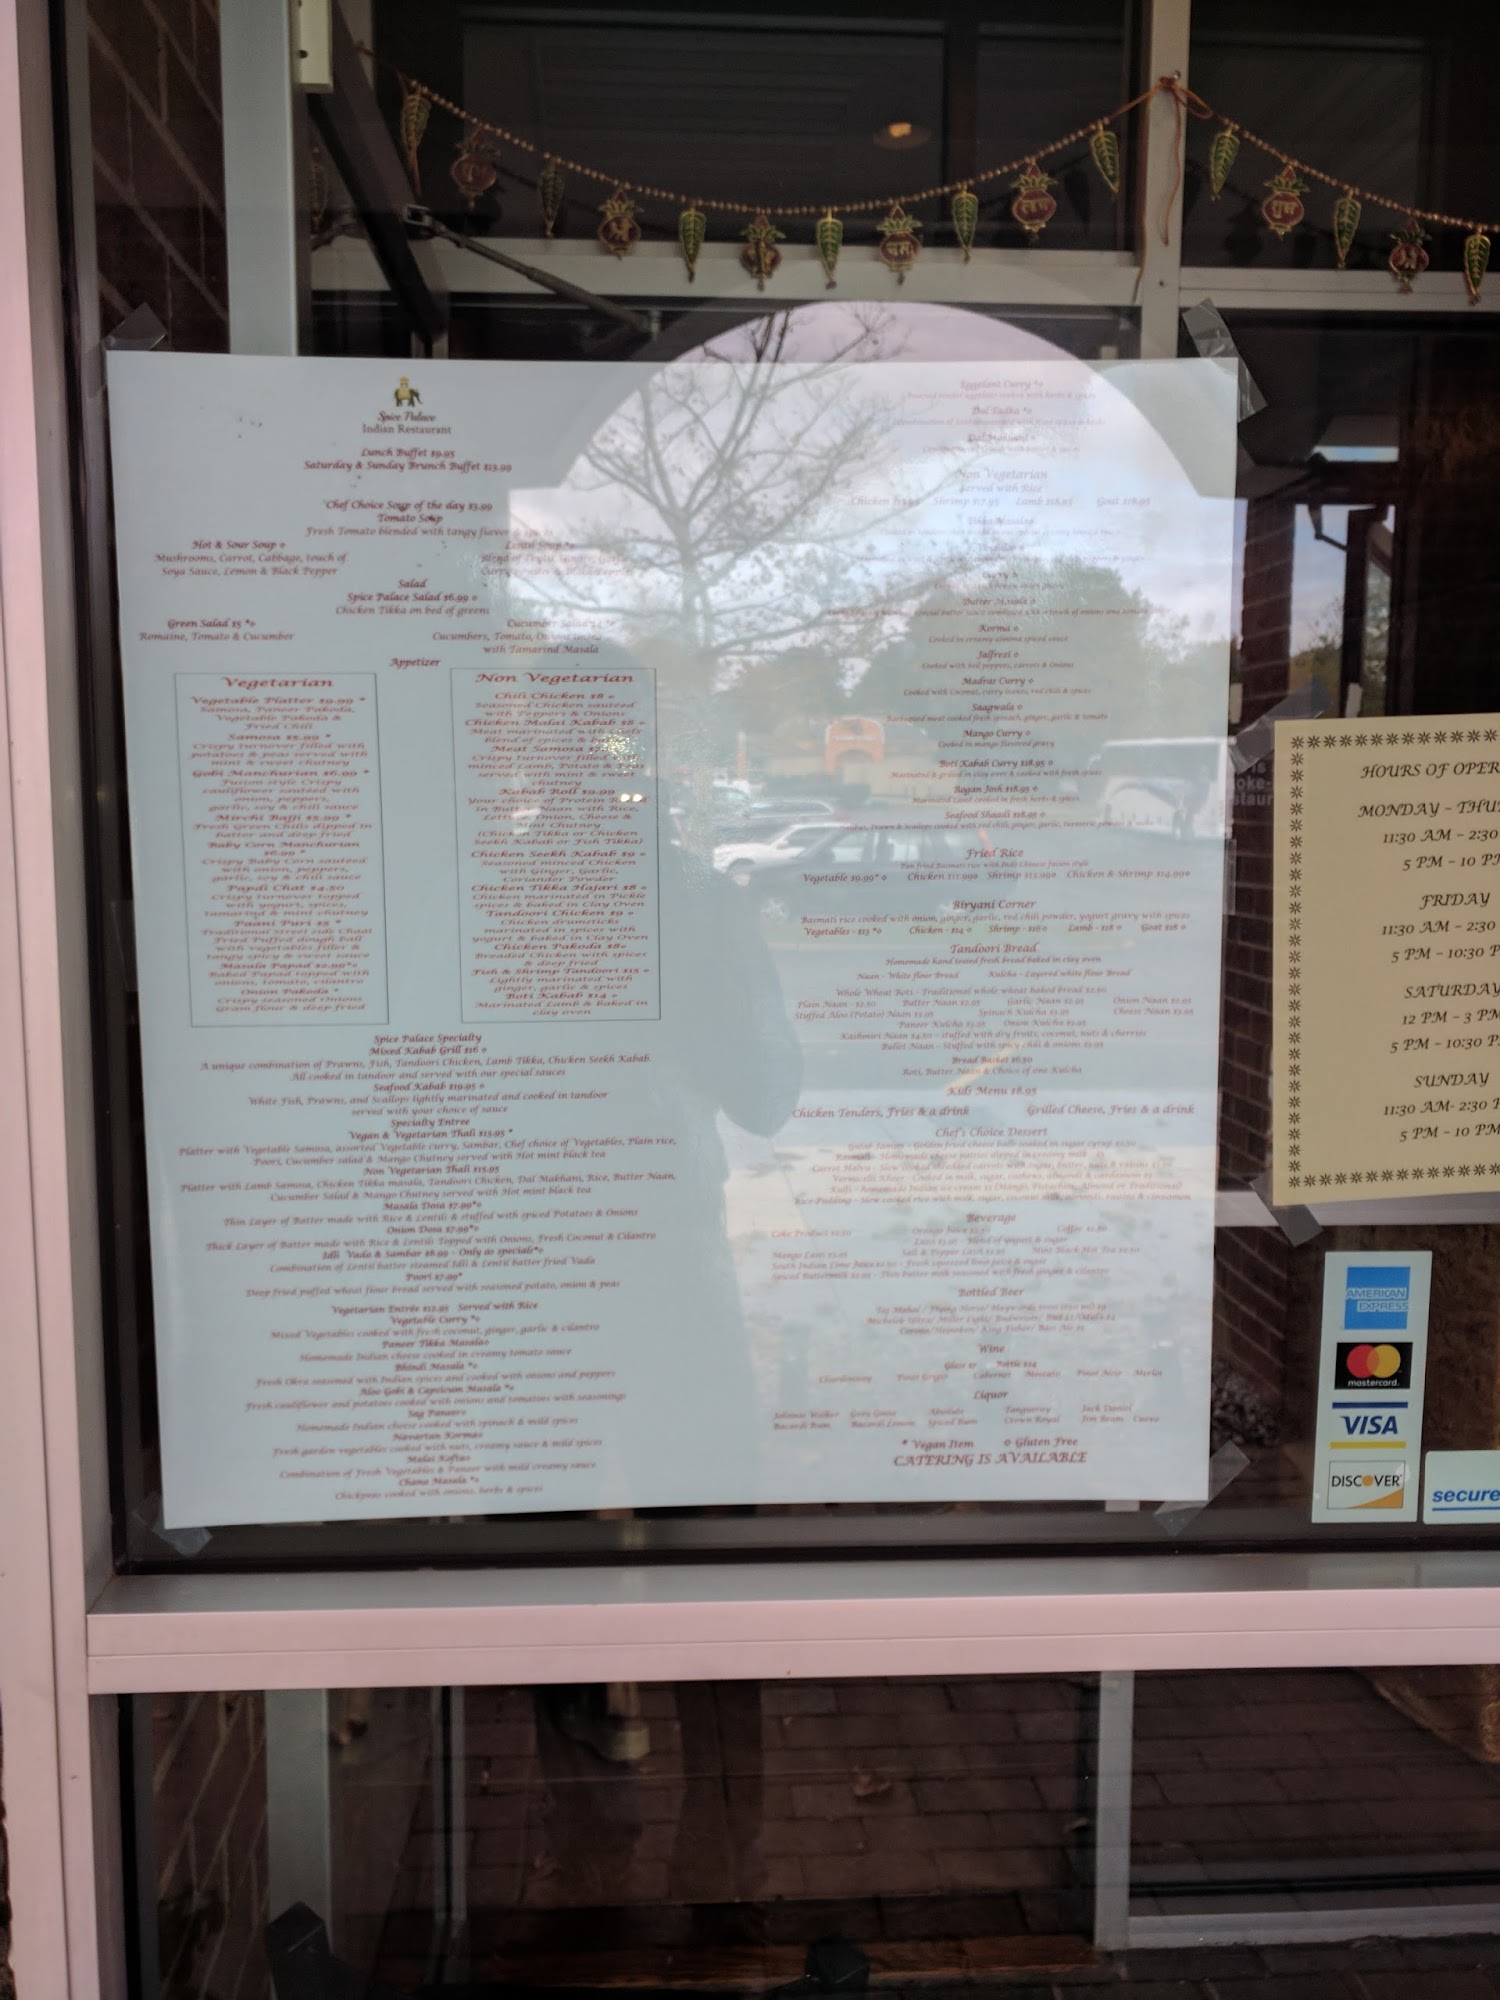 Spice Palace
Indian Restaurant
Lunch Buffet $9.95
Saturday & Sunday Brunch Buffet $13.99
Chef Choice Soup of the day $3.99
Tomato Soup
Fresh Tomato blended with tangy flavor &
Hot & Sour Soup ⋄
Mushrooms, Carrot, Cabbage, touch of
Soya Sauce, Lemon & Black Pepper
Lentil Soup
Salad
Spice Palace Salad $6.99 ⋄
Chicken Tikka on bed of greens
Green Salad $5 *⋄
Romaine, Tomato & Cucumber
Cucumber Salad
Cucumbers, Tomato,
with Tamarind Masala
Appetizer
Vegetarian
Vegetable Platter $9.99 *
Samosa, Paneer Pakoda,
Vegetable Pakoda &
Fried Chili
Samosa $5.99 *
Crispy turnover filled with
potatoes & peas served with
mint & sweet chutney
Gobi Manchurian $6.99 *
Fusion style Crispy
cauliflower sautéed with
onion, peppers,
garlic, soy & chili sauce
Mirchi Bajji $5.99 *
Fresh Green Chilis dipped in
batter and deep fried
Baby Corn Manchurian
$6.99 *
Crispy Baby Corn sauteed
with onion, peppers,
garlic, soy & chili sauce
Papdi Chat $4.50
Crispy turnover topped
with yogurt, spices,
tamarind & mint chutney
Paani Puri $5 *
Traditional Street side Chaat
Fried Puffed dough ball
with vegetables filler &
tangy spicy & sweet sauce
Masala Papad $2.99*⋄
Baked Papad topped with
onions, tomato, cilantro
Onion Pakoda *
Crispy seasoned Onions
Gram flour & deep fried
Non Vegetarian
Chili Chicken $8 ⋄
Seasoned Chicken sautéed
with Peppers & Onions
Chicken Malai Kabab $8 ⋄
Meat marinated with Chefs
blend of spices &
Meat Samosa
Crispy turnover filled
minced Lamb, Potato & Peas
served with mint & sweet
chutney
Kabab Roll $9.99
Your choice of Protein
in Butter Naan with Rice,
Lettuce, Onion, Cheese &
Mint Chutney
(Chicken Tikka or Chicken
Seekh Kabab or Fish Tikka)
Chicken Seekh Kabab $9 ⋄
Seasoned minced Chicken
with Ginger, Garlic,
Coriander Powder
Chicken Tikka Hajari $8 ⋄
Chicken marinated in Pickle
spices & baked in Clay Oven
Tandoori Chicken $9 ⋄
Chicken drumsticks
marinated in spices with
yogurt & baked in Clay Oven
Chicken Pakoda $8⋄
Breaded Chicken with spices
& deep fried
Fish & Shrimp Tandoori $15 ⋄
Lightly marinated with
ginger, garlic & spices
Boti Kabab $14 ⋄
Marinated Lamb & baked in
clay oven
Spice Palace Specialty
Mixed Kabab Grill $16 ⋄
A unique combination of Prawns, Fish, Tandoori Chicken, Lamb Tikka, Chicken Seekh Kabab.
All cooked in tandoor and served with our special sauces
Seafood Kabab $19.95 ⋄
White Fish, Prawns, and Scallops lightly marinated and cooked in tandoor
served with your choice of sauce
Specialty Entree
Vegan & Vegetarian Thali $13.95 *
Platter with Vegetable Samosa, assorted Vegetable curry, Sambar, Chef choice of Vegetables, Plain rice,
Poori, Cucumber salad & Mango Chutney served with Hot mint black tea
Non Vegetarian Thali $15.95
Platter with Lamb Samosa, Chicken Tikka masala, Tandoori Chicken, Dal Makhani, Rice, Butter Naan,
Cucumber Salad & Mango Chutney served with Hot mint black tea
Masala Dosa $7.99*⋄
Thin Layer of Batter made with Rice & Lentils & stuffed with spiced Potatoes & Onions
Onion Dosa $7.99*⋄
Thick Layer of Batter made with Rice & Lentils Topped with Onions, Fresh Coconut & Cilantro
Idli Vada & Sambar $8.99 - Only as specials*⋄
Combination of Lentil batter steamed Idli & Lentil batter fried Vada
Poori $7.99*
Deep fried puffed wheat flour bread served with seasoned potato, onion & peas
Vegetarian Entrée $12.95 Served with Rice
Vegetable Curry *⋄
Mixed Vegetables cooked with fresh coconut, ginger, garlic & cilantro
Paneer Tikka Masala⋄
Homemade Indian cheese cooked in creamy tomato sauce
Bhindi Masala *⋄
Fresh Okra seasoned with Indian spices and cooked with onions and peppers
Aloo Gobi & Capsicum Masala *⋄
Fresh cauliflower and potatoes cooked with onions and tomatoes with seasonings
Sag Paneer⋄
Homemade Indian cheese cooked with spinach & mild spices
Navartan Korma⋄
Fresh garden vegetables cooked with nuts, creamy sauce & mild spices
Malai Kofta⋄
Combination of Fresh Vegetables & Paneer with mild creamy sauce
Chana Masala *⋄
Chickpeas cooked with onions, herbs & spices
Eggplant Curry *⋄
Dal Tadka *⋄
Dal Makhani ⋄
Non Vegetarian
Served with Rice
Chicken $15.95 Shrimp $17.95 Lamb $18.95 Goat $18.95
Tikka Masala⋄
Curry ⋄
Butter Masala ⋄
Korma ⋄
Cooked in creamy almond spiced sauce
Jalfrezi ⋄
Cooked with bell peppers, carrots & Onions
Madras Curry ⋄
Cooked with Coconut, curry leaves, red chili & spices
Saagwala ⋄
Barbequed meat cooked fresh spinach, ginger, garlic & tomato
Mango Curry ⋄
Cooked in mango flavored gravy
Boti Kabab Curry $18.95 ⋄
Marinated & grilled in clay oven & cooked with fresh spices
Rogan Josh $18.95 ⋄
Marinated Lamb cooked in fresh herbs & spices
Seafood Shaadi $18.95 ⋄
Prawn & Scallops cooked with red chili, ginger, garlic, turmeric powder &
Fried Rice
Pan fried Basmati rice with Indo Chinese fusion style
Vegetable $9.99* ⋄ Chicken $11.99⋄ Shrimp $13.99⋄ Chicken & Shrimp $14.99⋄
Biryani Corner
Basmati rice cooked with onion, ginger, garlic, red chili powder, yogurt gravy with spices
Vegetables - $13 *⋄ Chicken - $14 ⋄ Shrimp - $16 ⋄ Lamb - $18 ⋄ Goat $18 ⋄
Tandoori Bread
Homemade hand tested fresh bread baked in clay oven
Naan - White flour Bread Kulcha - Layered white flour Bread
Whole Wheat Roti - Traditional whole wheat baked bread $2.50
Plain Naan - $2.50 Butter Naan $2.95 Garlic Naan $2.95 Onion Naan $2.95
Stuffed Aloo (Potato) Naan $3.95 Spinach Kulcha $3.95 Cheese Naan $3.95
Paneer Kulcha $3.95 Onion Kulcha $3.95
Kashmiri Naan $4.50 - stuffed with dry fruits, coconut, nuts & cherries
Bullet Naan - Stuffed with spicy chili & onions $3.95
Bread Basket $6.50
Roti, Butter Naan & Choice of one Kulcha
Kids Menu $8.95
Chicken Tenders, Fries & a drink Grilled Cheese, Fries & a drink
Chef's Choice Dessert
Gulab Jamun - Golden fried cheese balls soaked in sugar syrup
Rasmali - Homemade cheese patties dipped in creamy milk
Carrot Halwa - Slow cooked shredded carrots with sugar, butter, nuts & raisins
Vermicelli Kheer - Cooked in milk, sugar, cashews, almonds & cardamom
Kulfi - homemade Indian ice cream $3 (Mango, Pistachio, Almond or Traditional)
Rice Pudding - Slow cooked rice with milk, sugar, coconut milk, almonds, raisins & cinnamon
Beverage
Coke Product $2.50 Orange Juice Coffee
Lassi $3.95 - Blend of yogurt & sugar
Mango Lassi $3.95 Salt & Pepper Lassi $2.95 Mint Black Hot Tea $2.50
South Indian Lime Juice - Fresh squeezed lime juice & sugar
Spiced Buttermilk - Thin butter milk seasoned with fresh ginger & cilantro
Bottled Beer
Taj Mahal / Flying Horse/ Haywards 5000
Michelob Ultra/ Miller Light/ Budweiser/
Corona/Heineken/ King Fisher/ Bass Ale
Wine
Glass $7 Bottle $24
Chardonnay Pinot Grigio Cabernet Moscato Pinot Noir Merlot
Liquor
Johnnie Walker Grey Goose Absolute Tangueray Jack Daniel
Bacardi Rum Bacardi Lemon Spiced Rum Crown Royal Jim Beam Cuervo
* Vegan Item ⋄ Gluten Free
CATERING IS AVAILABLE
HOURS OF OPER
MONDAY – THU
11:30 AM – 2:30
5 PM – 10 P
FRIDAY
11:30 AM – 2:30
5 PM – 10:30 P
SATURDAY
12 PM – 3 PM
5 PM – 10:30 P
SUNDAY
11:30 AM- 2:30 P
5 PM – 10 PM
AMERICAN EXPRESS
mastercard.
VISA
DISCOVER
secure